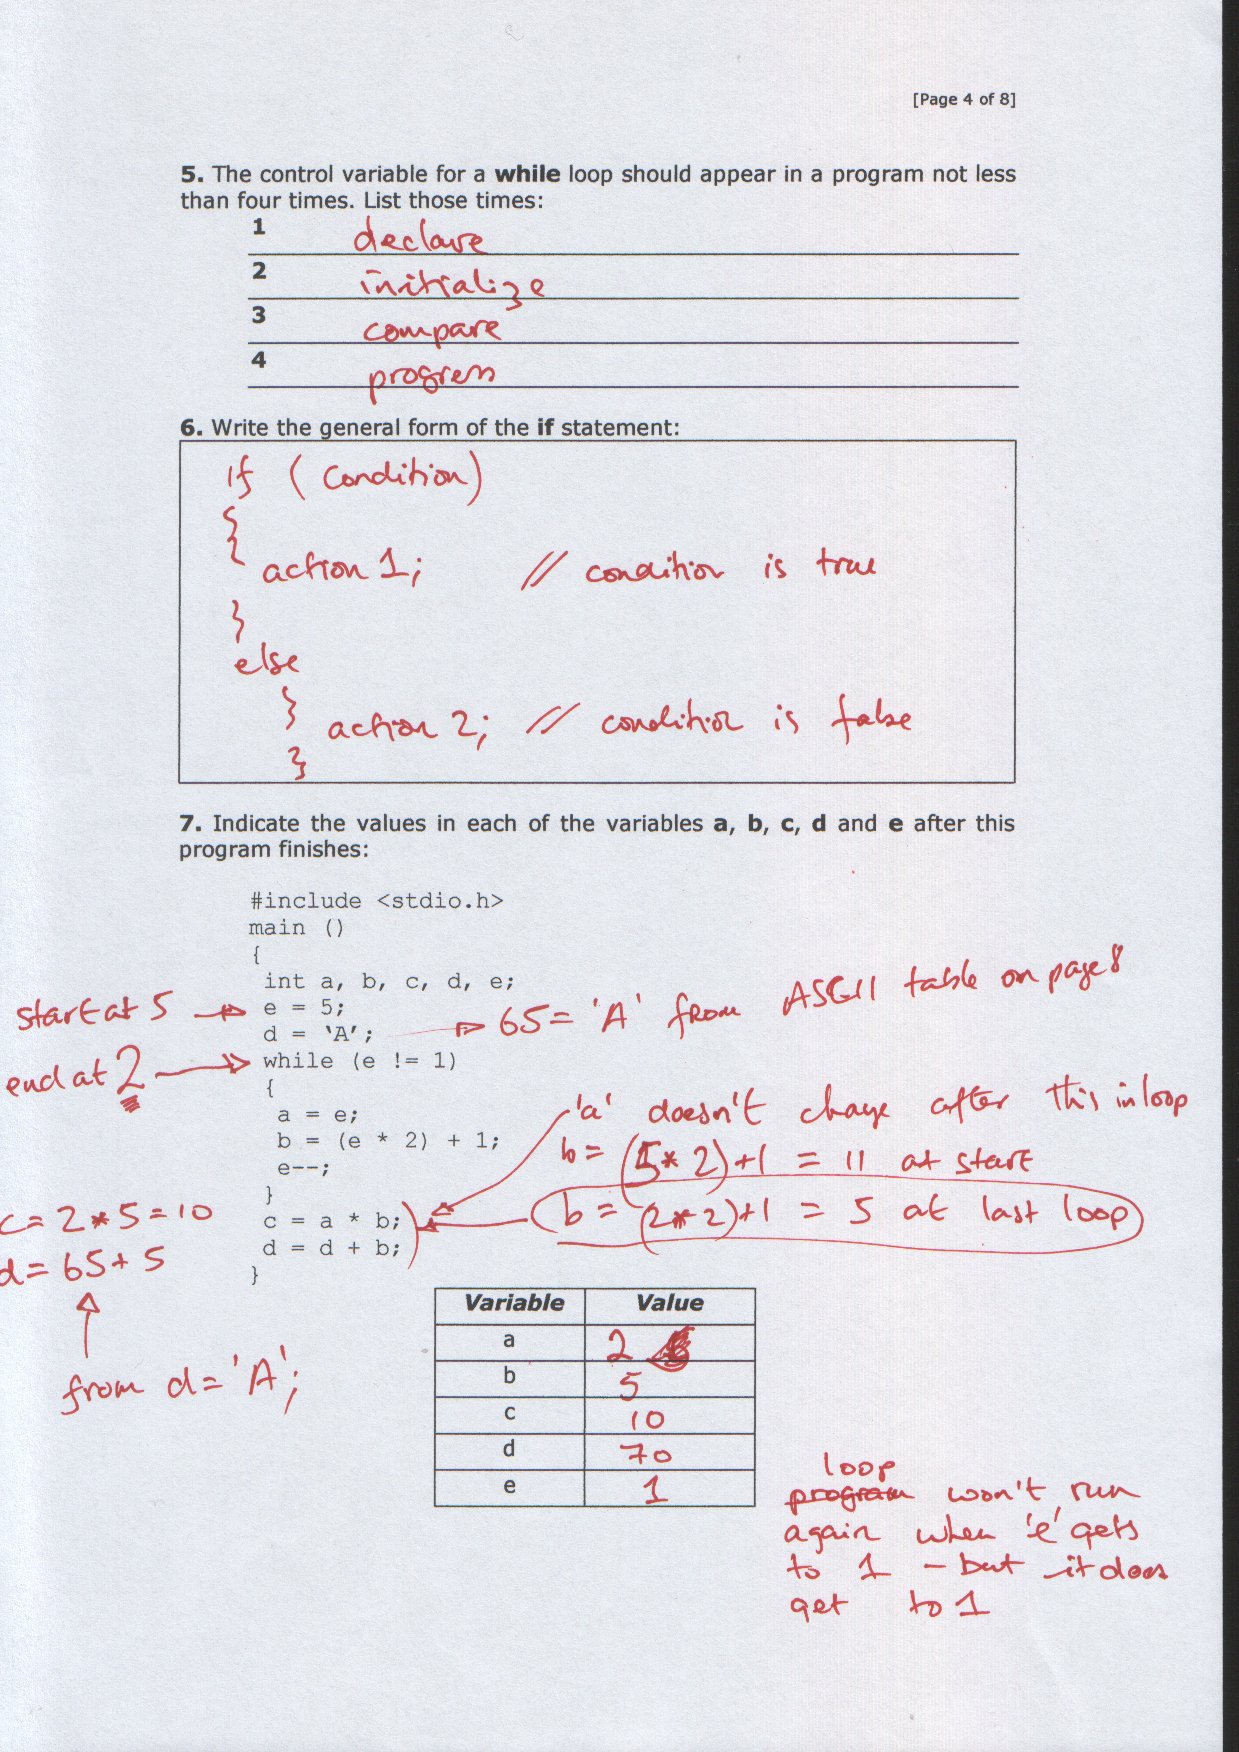 [Page 4 of 8]
5. The control variable for a while loop should appear in a program not less
than four times. List those times:
1 declare
2 initialize
3 compare
4 progress
6. Write the general form of the if statement:
if (condition)
{
action 1; // condition is true
}
else
}
action 2; // condition is false
}
7. Indicate the values in each of the variables a, b, c, d and e after this
program finishes:
#include <stdio.h>
main ()
{
int a, b, c, d, e;
start at 5 e = 5;
d = 'A'; 65 = 'A' from ASCII table on page 8
end at 2 while (e != 1)
{
a = e; 'a' doesn't change after this in loop
b = (e * 2) + 1; b = (5 * 2) + 1 = 11 at start
e--;
}
c = 2 * 5 = 10 c = a * b; b = (2 * 2) + 1 = 5 at last loop
d = 65 + 5 d = d + b;
}
from d = 'A';
Variable Value
a 2
b 5
c 10
d 70
e 1
loop
program won't run
again when 'e' gets
to 1 - but it does
get to 1